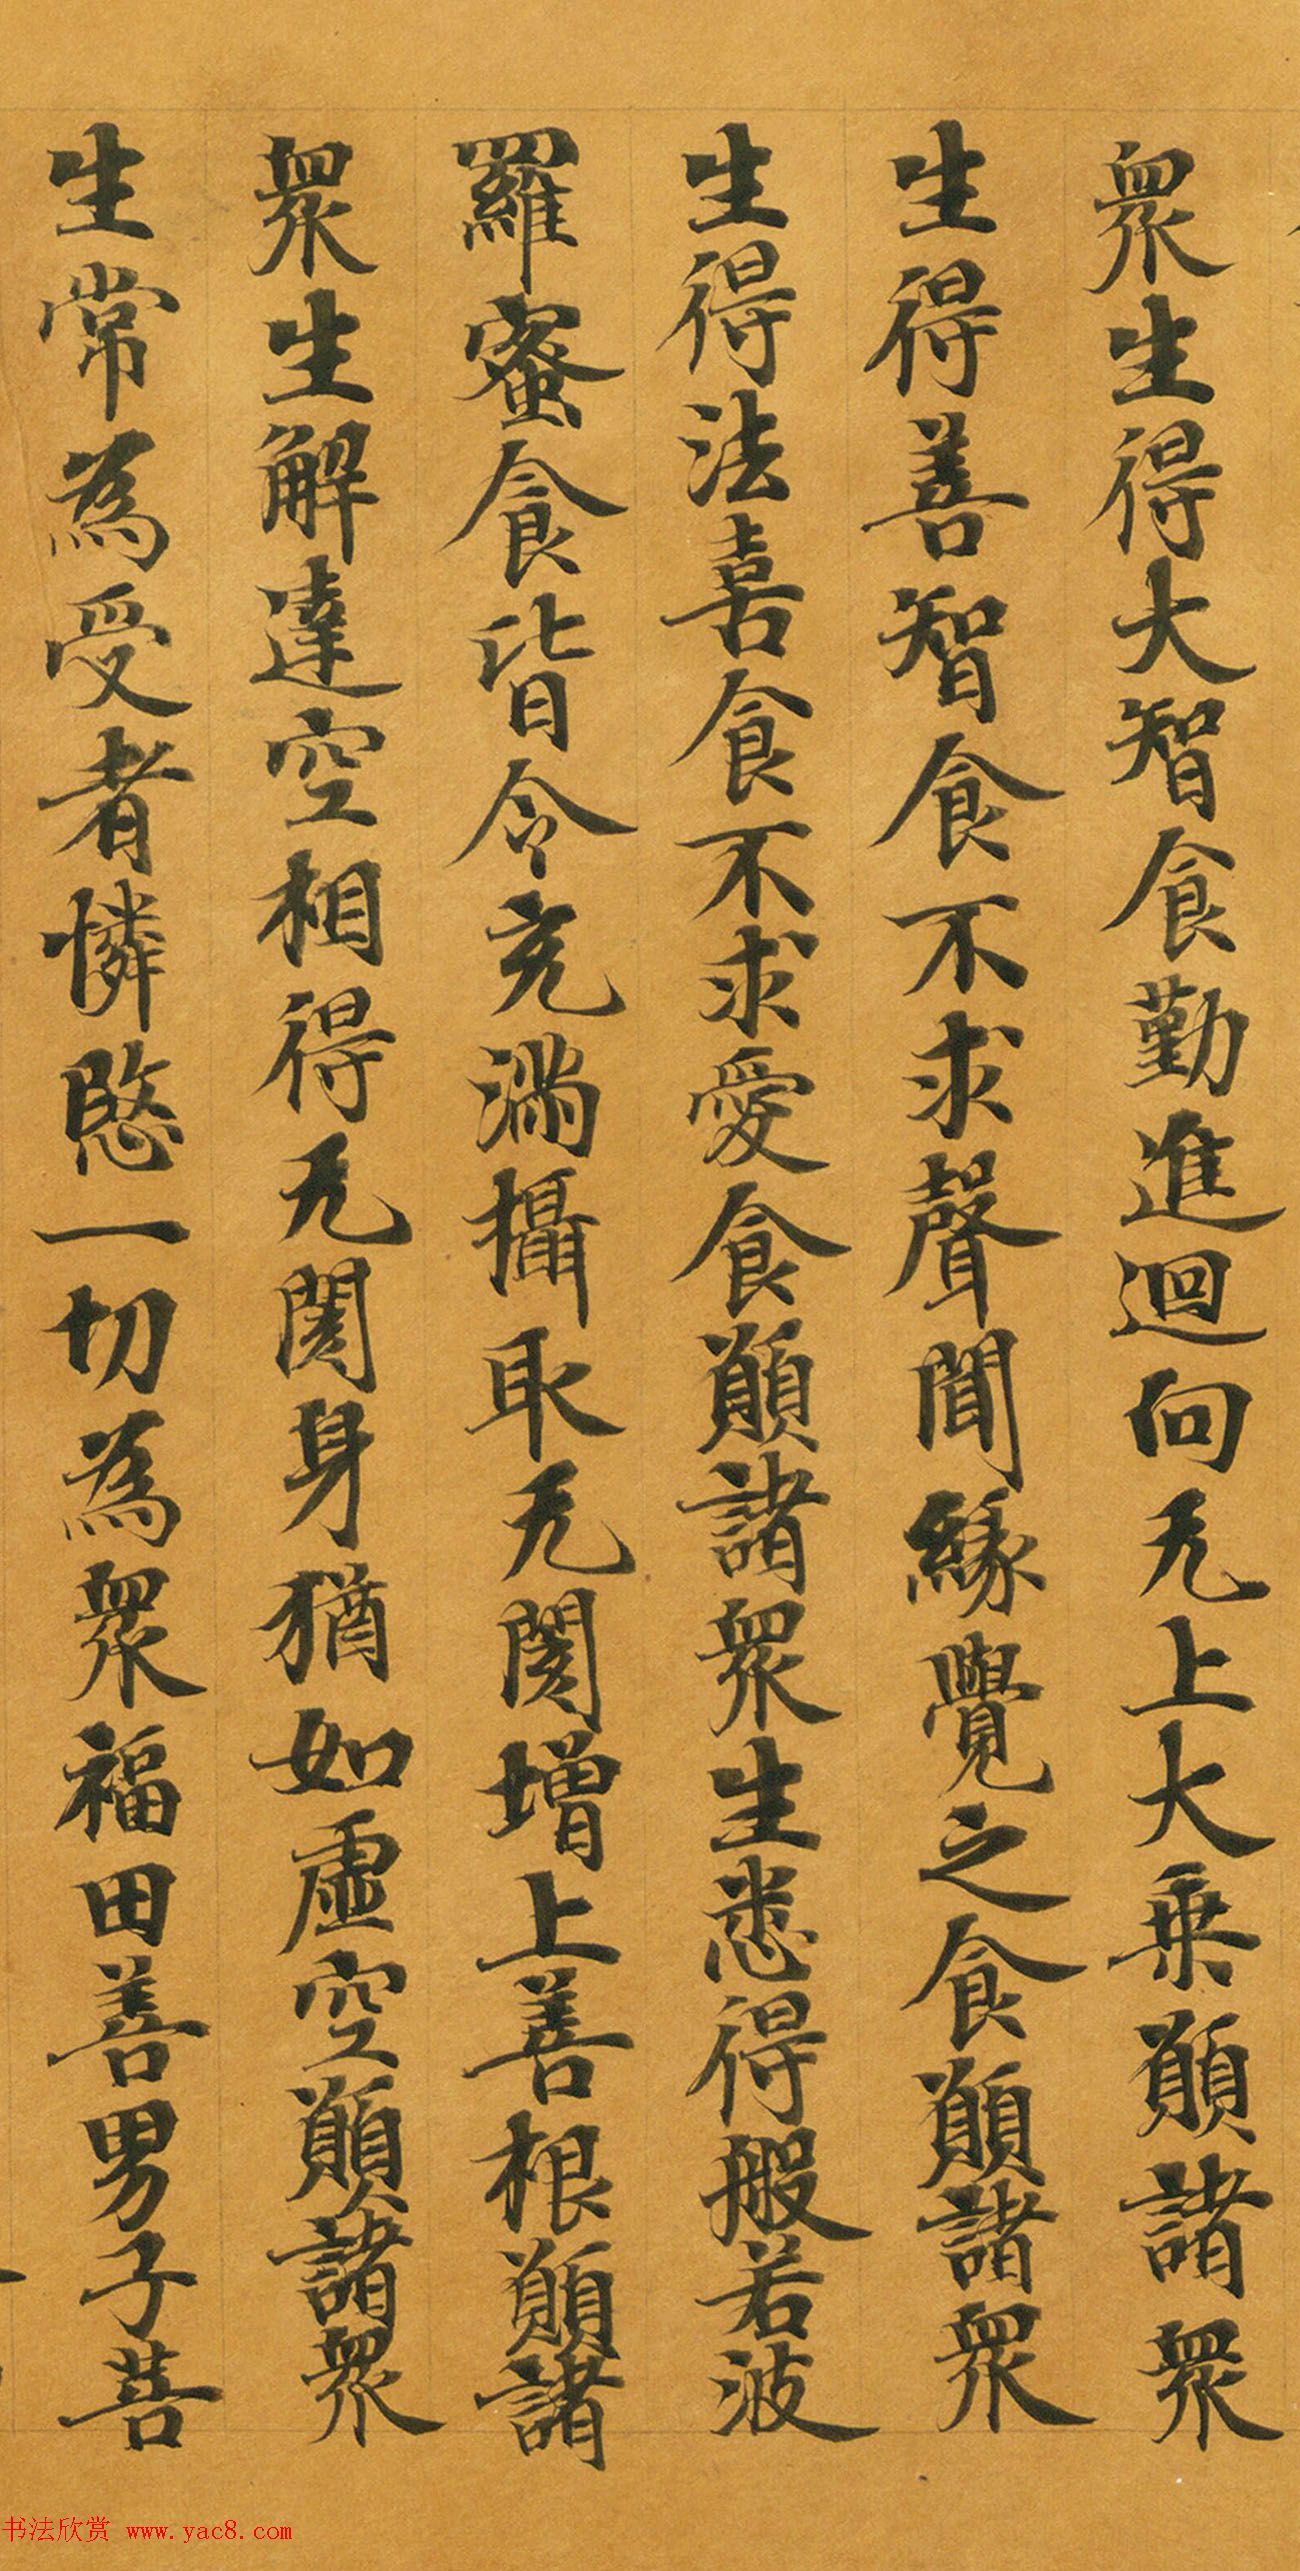 眾生得大智食勤進迴向无上大乘願諸眾
生得善智食不求聲聞緣覺之食願諸眾
生得法喜食不求愛食願諸眾生悉得般若波
羅蜜食皆令充滿攝取无閡增上善根願諸
眾生解達空相得无閡身猶如虛空願諸眾
生常為受者憐愍一切為眾福田善男子菩
书法欣赏 www.yac8.com